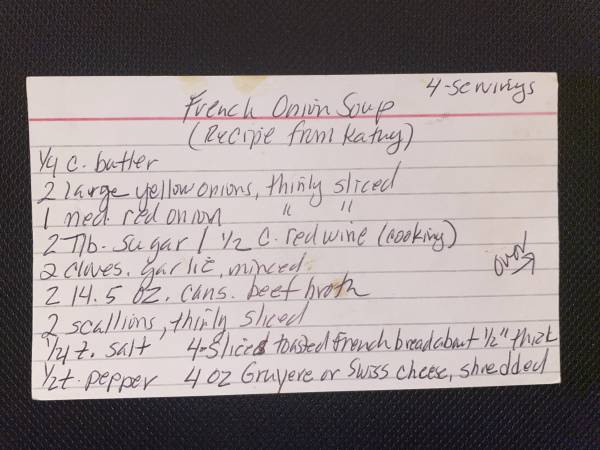 4-servings
French Onion Soup
(Recipe from Kathy)
1/4 c. butter
2 large yellow onions, thinly sliced
1 med. red onion " "
2 Tlb. sugar / 1/2 c. red wine (cooking)
2 cloves. garlic, minced
over →
2 14.5 oz. cans. beef broth
2 scallions, thinly sliced
1/4 t. salt 4-Slices toasted French bread about 1/2" thick
1/2 t. pepper 4 oz Gruyere or Swiss cheese, shredded